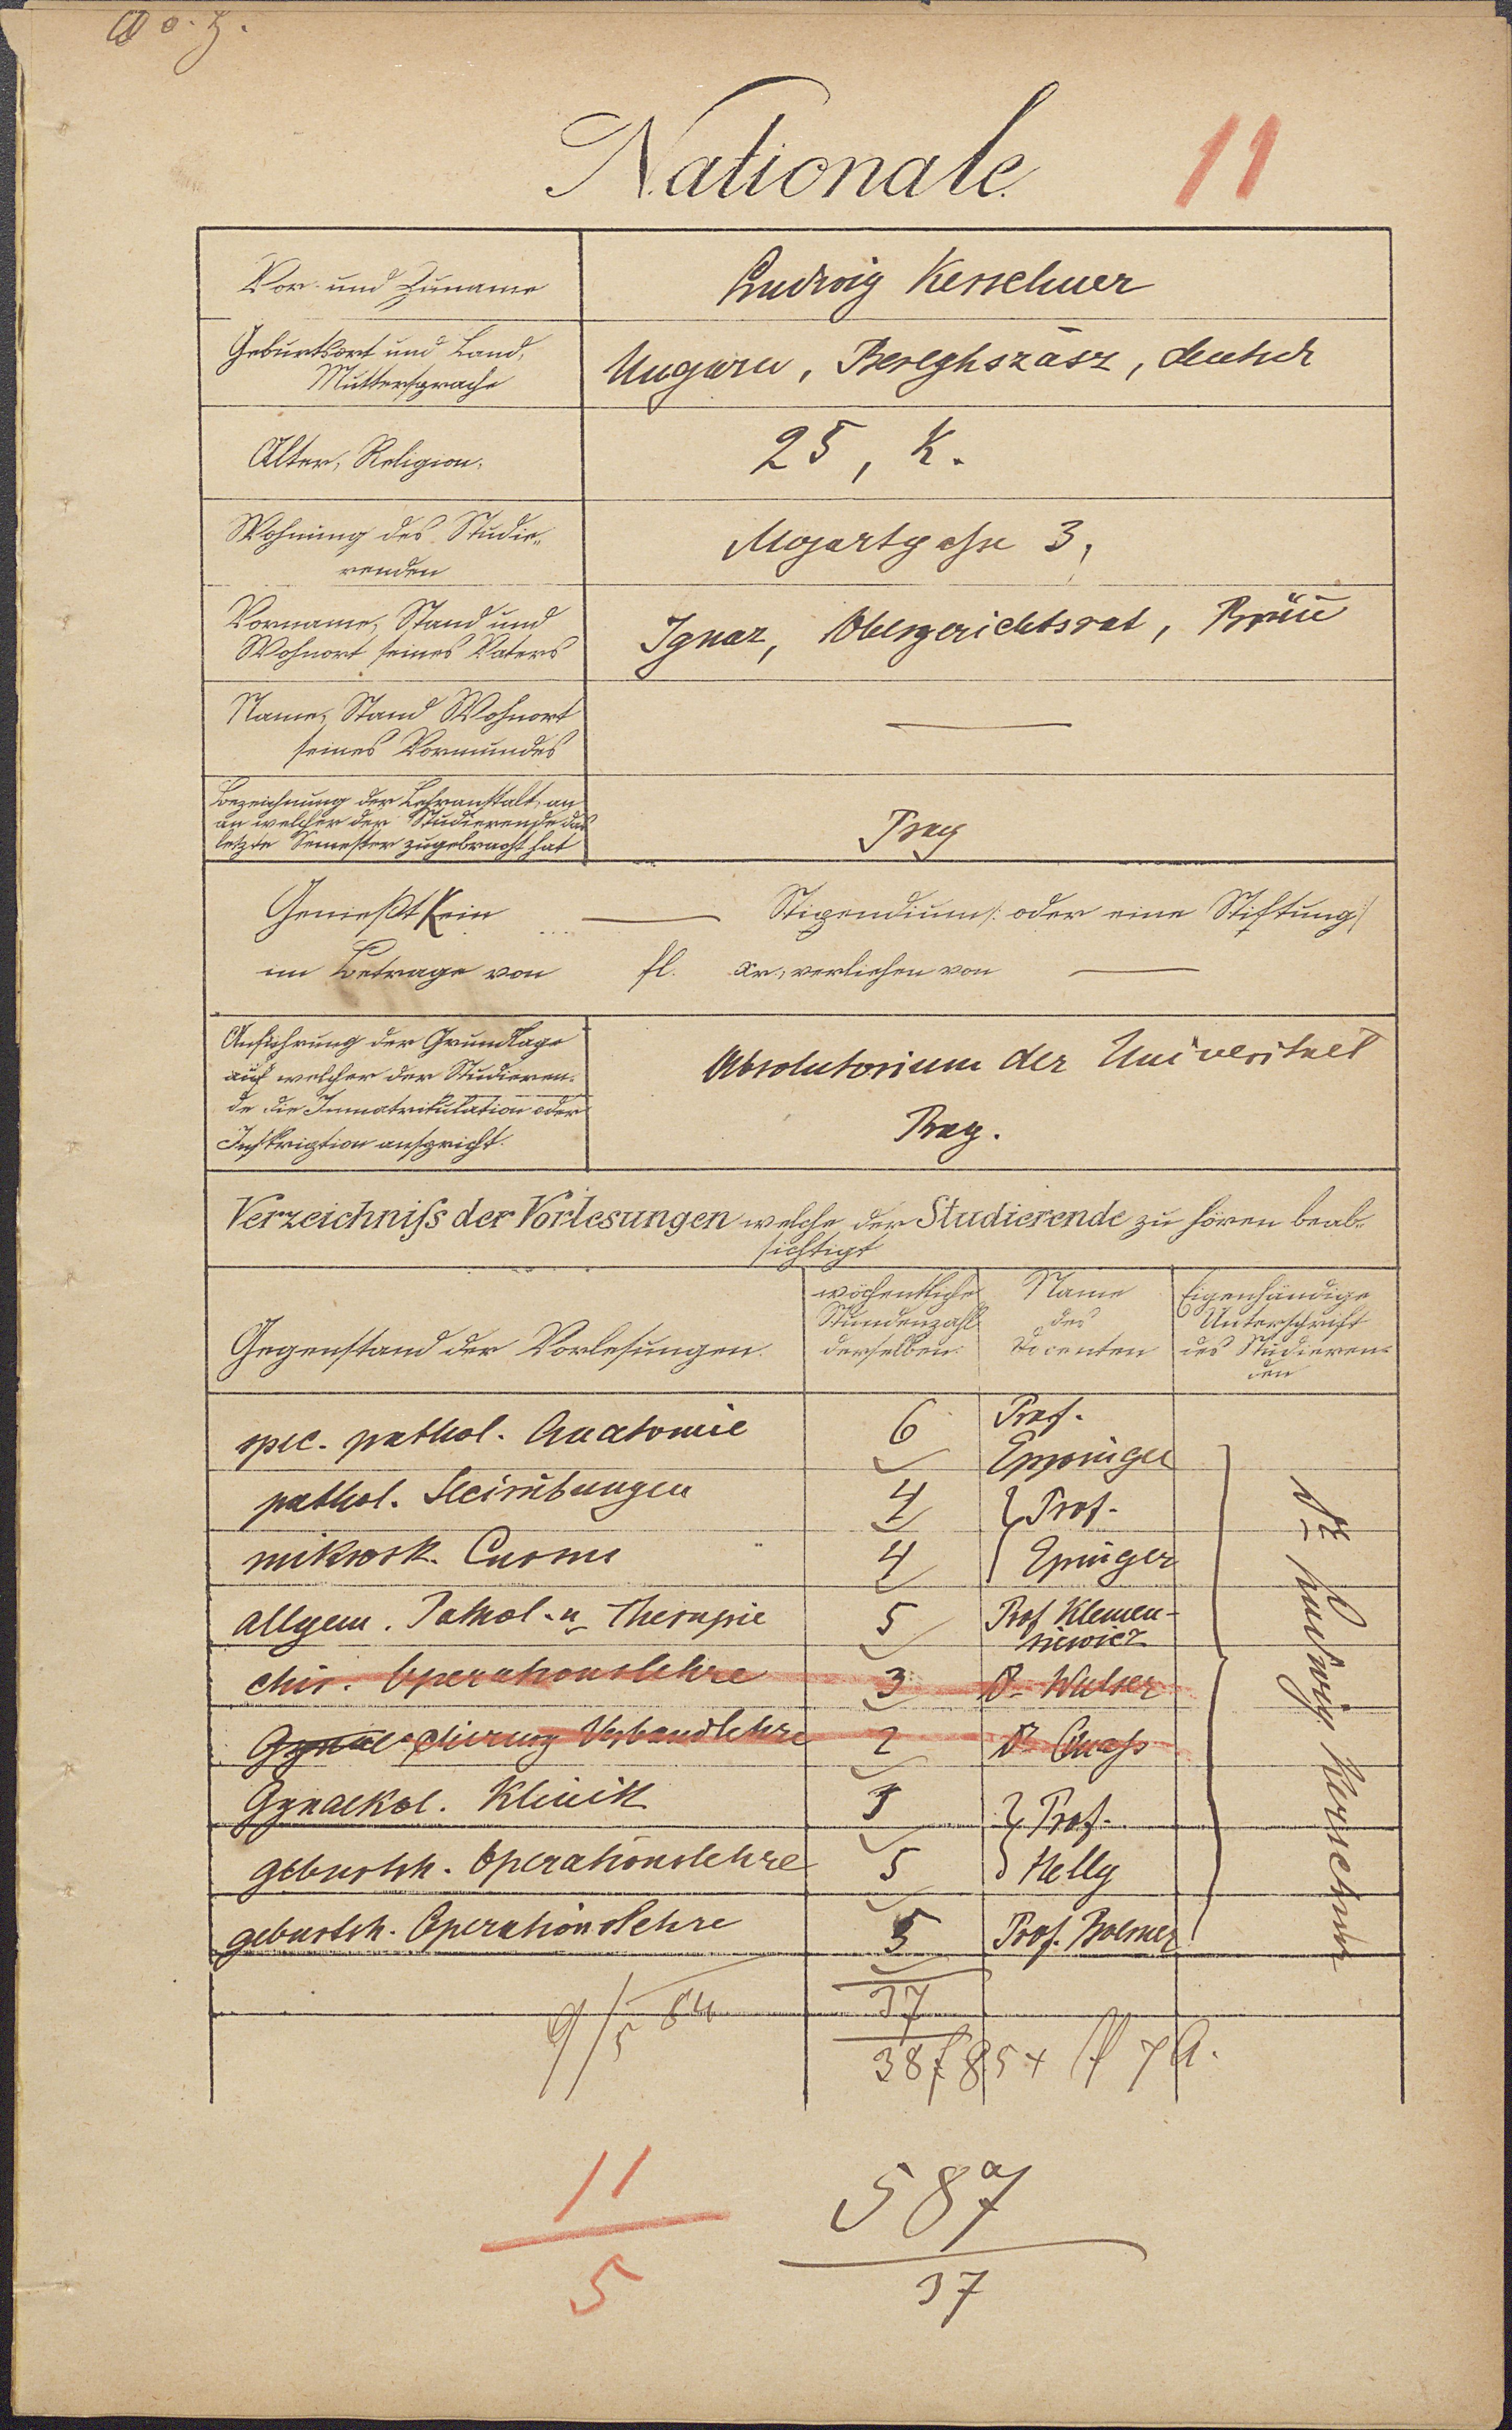 a. o. H.
Nationale.
11
Vor- und Zuname
Ludwig Kerschner
Geburtsort und Land,
Muttersprache
Ungarn, Bereghszász, deutsch
Alter, Religion,
25, k.
Wohnung des Studie-
renden
Mozartgasse 3,
Vorname, Stand und
Wohnort seines Vaters
Ignaz, Obergerichtsrat, Brünn
Name, Stand Wohnort
seines Vormundes
Bezeichnung der Lehranstalt, an
an welcher der Studierende das
letzte Semester zugebracht hat
Prag
Genießt kein — Stipendium /: oder eine Stiftung :/
im Betrage von fl. xr., verliehen von —
Anführung der Grundlage
auf welcher der Studieren-
de die Immatrikulation oder
Inskription anspricht.
Absolutorium der Universitaet
Prag.
Verzeichniss der Vorlesungen welche der Studierende zu hören beab-
sichtigt
Gegenstand der Vorlesungen.
wöchentliche
Stundenzahl
derselben.
Name
des
Docenten
Eigenhändige
Unterschrift
des Studieren-
den
spec. pathol. Anatomie 6 Prof.
Eppinger
pathol. Secirübungen 4 Prof.
mikrosk. Curse 4 Eppinger
allgem. Pathol. u. Therapie 5 Prof Klemen-
siewicz
chir. Operationslehre 3 Dr Walser
Gynae chirurg Verbandlehre 2 Dr Quass
Gynaekol. Klinik 5 Prof.
geburtsh. Operationslehre 5 Helly
geburtsh. Operationslehre 5 Prof. Boerner
Dr Ludwig Kerschner
37
9/5 84
38 f 85 x
11
5
587
37